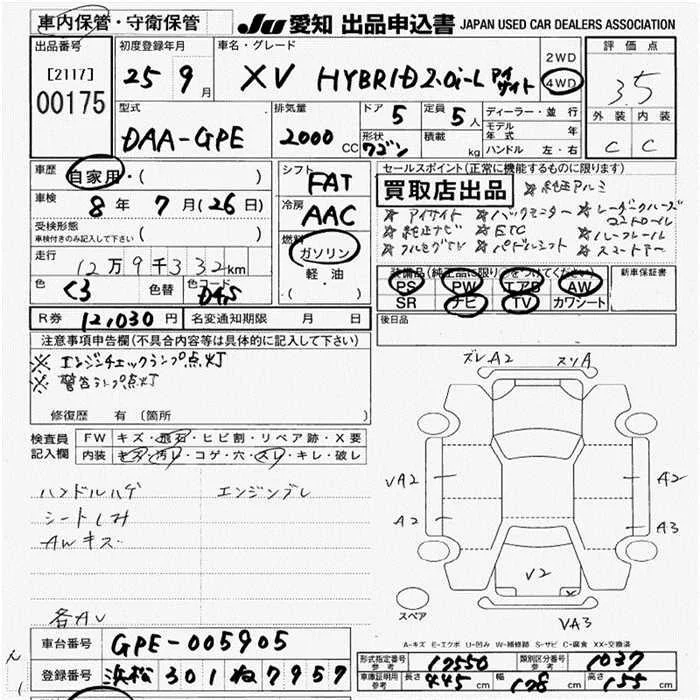 車内保管・守衛保管
JU 愛知 出品申込書 JAPAN USED CAR DEALERS ASSOCIATION
出品番号 初度登録年月 車名・グレード 2WD 評価点
[2117] 25 9月 XV HYBRID 2.0i-L アイサイト 4WD 3.5
00175
型式 排気量 ドア 5 定員 5人 ディーラー・並行 外装 内装
DAA-GPE 2000CC 形状 ワゴン 積載 kg モデル年式 年 C C
ハンドル 左・右
車歴 自家用・( ) シフト FAT セールスポイント(正常に機能するものに限ります)
買取店出品 ☆純正アルミ
車検 8年 7月(26日) 冷房 AAC ☆アイサイト ☆バックモニター ☆レーダークルーズコントロール
受検形態 車検付きのみ記入して下さい ( ) 燃料 ガソリン ☆純正ナビ ☆ETC ☆ルーフレール
☆フルセグTV ☆パドルシフト ☆スマートキー
走行 12万9千332km 軽油 装備品(純正品に限り○をつけてください) 新車保証書
色 C3 色替 色コード D4S ・( ) PS PW エアB AW
SR ナビ TV カワシート
R券 12,030円 名変通知期限 月 日 後日品
注意事項申告欄(不具合内容等は具体的に記入して下さい)
※ エンジンチェックランプ点灯
※ 警告ランプ点灯
修復歴 有 (箇所
ズレA2 スリA
検査員記入欄 FW キズ・飛石・ヒビ割・リペア跡・X要
内装 キズ・汚レ・コゲ・穴・スレ・キレ・破レ
ハンドルハゲ エンジンブレ
シートしみ
AWキズ
各AU
VA2 A2
A2 A3
V2 X
スペア VA3
A-キズ E-エクボ U-凹み W-補修跡 S-サビ C-腐食 XX-交換済
車台番号 GPE-005905
形式指定番号 参考 17550 類別区分番号 参考 1037
登録番号 浜松 301 ね 7957
車庫証明用 参考 長さ 445cm 幅 178cm 高さ 155cm